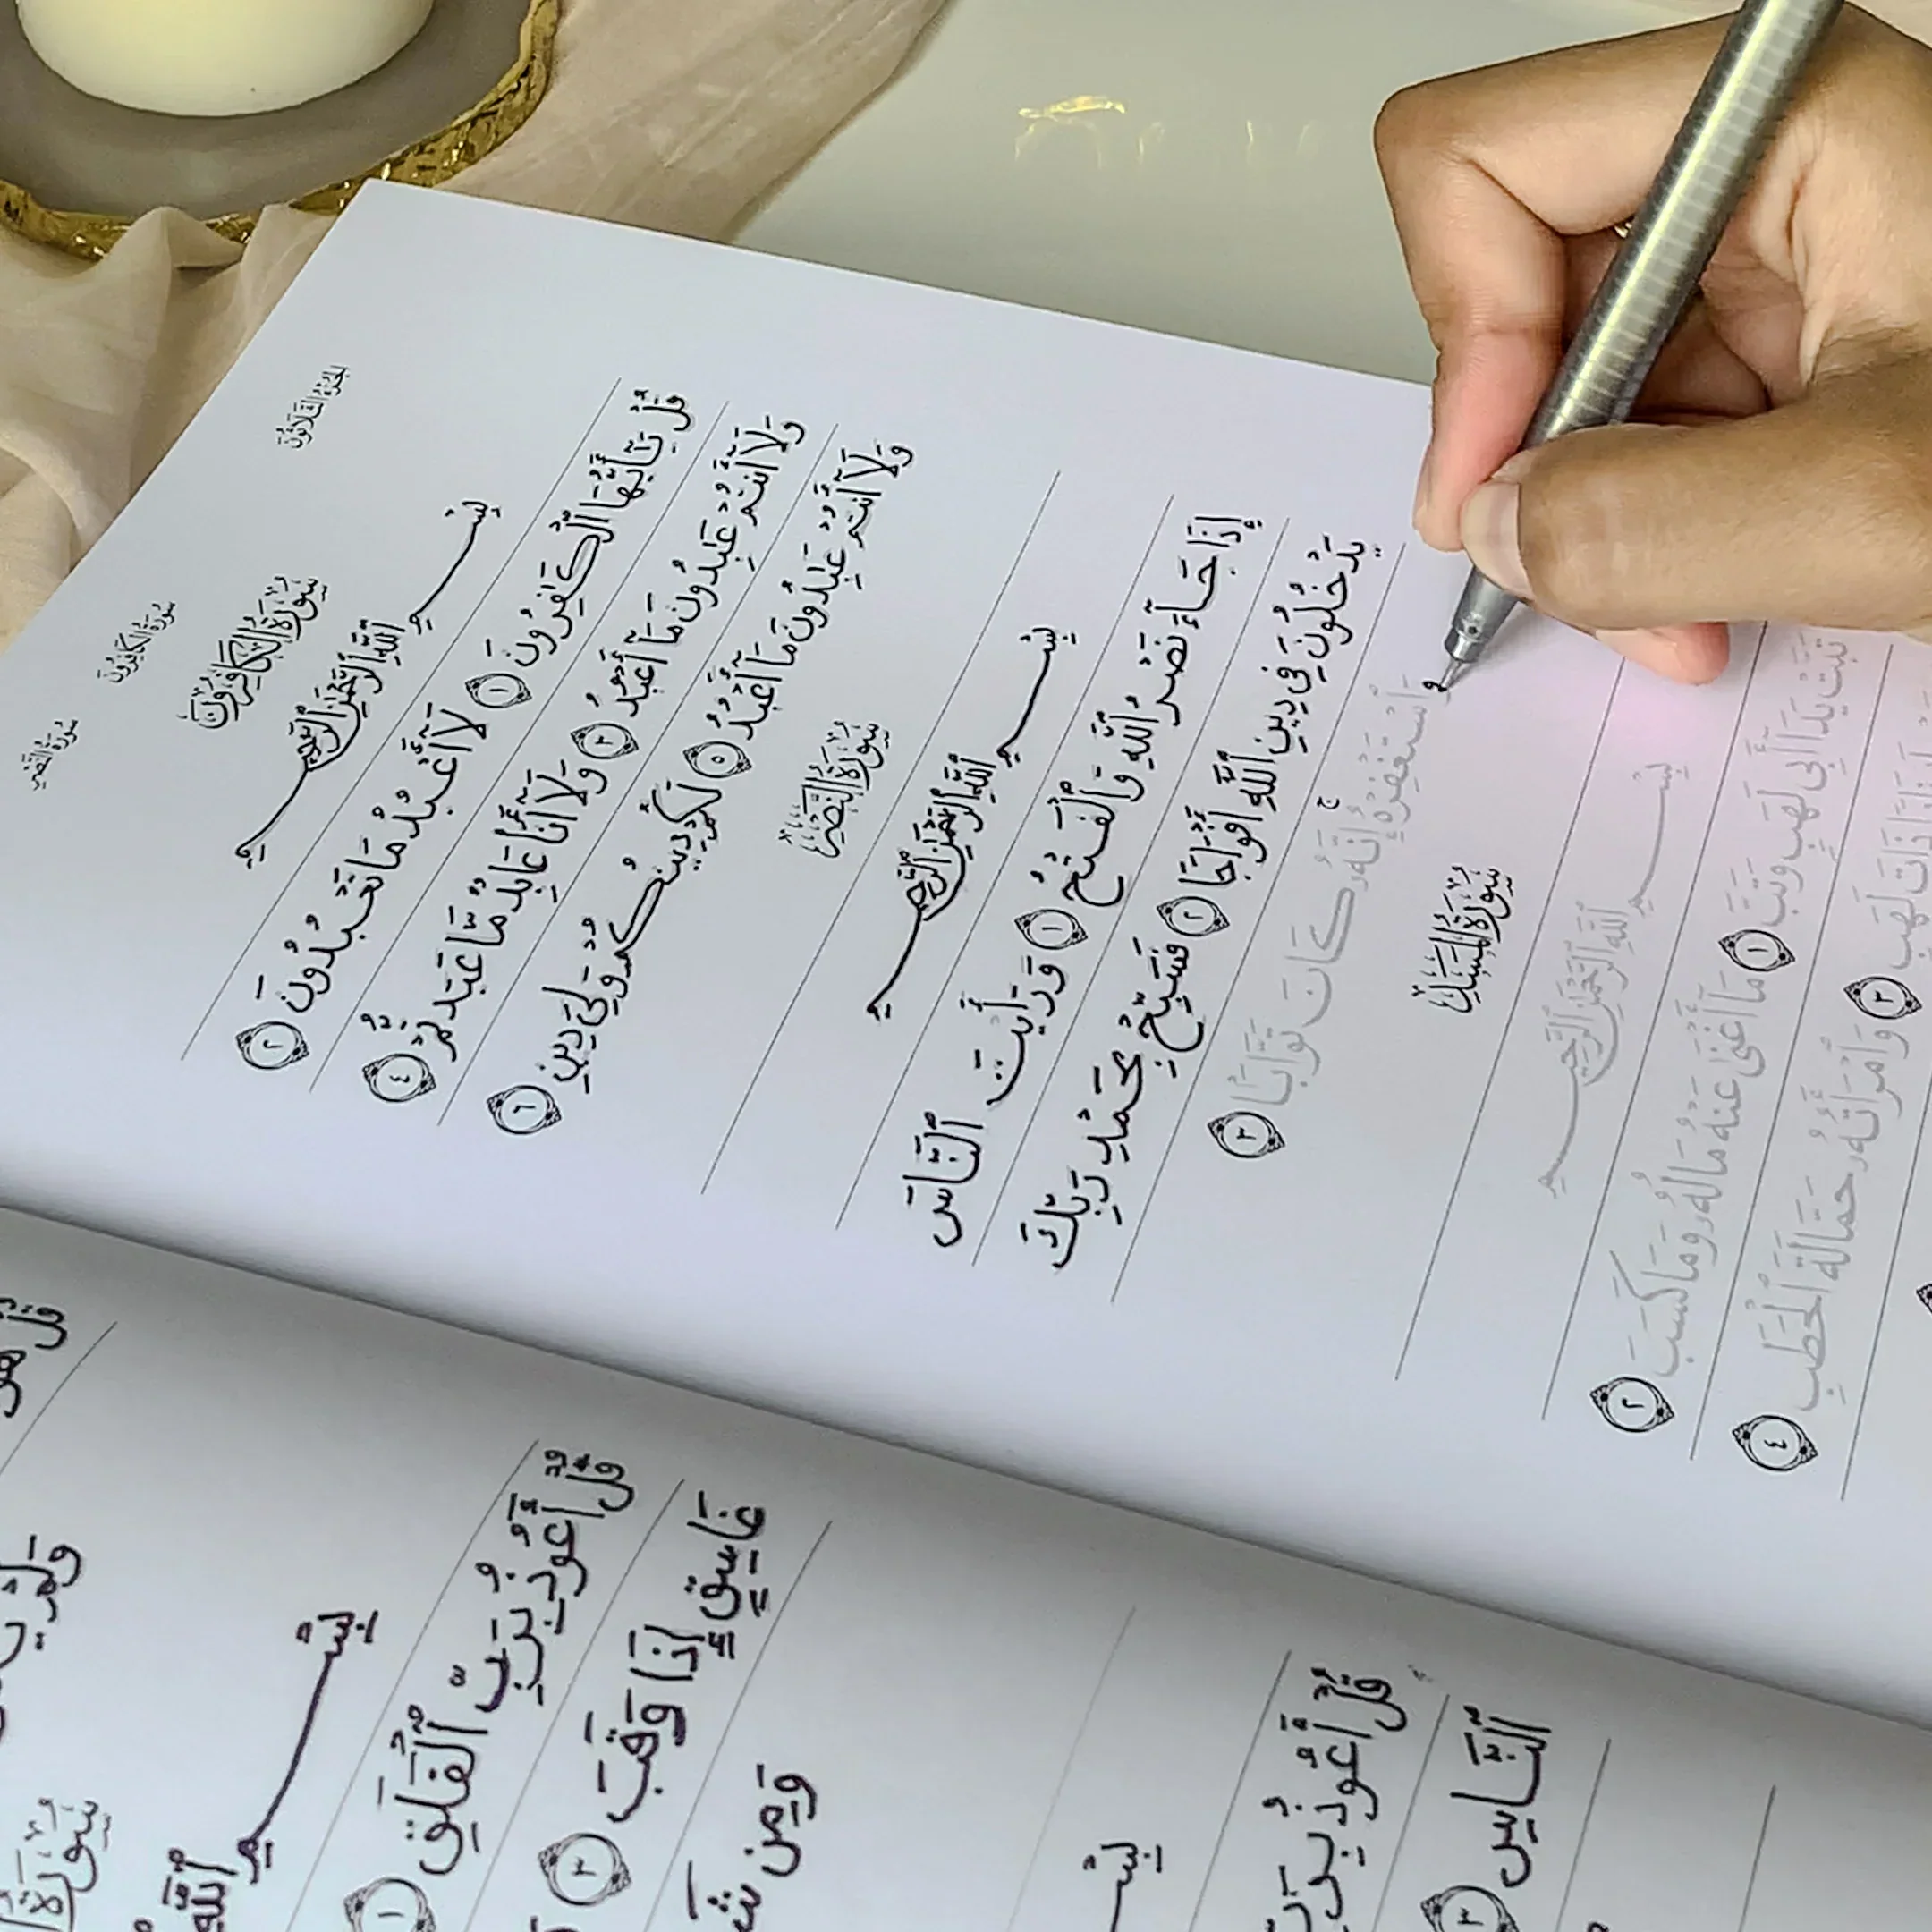 الجزء الثلاثون
سورة الكافرون
سورة النصر
سُورَةُ الكَافِرُونَ
بِسْمِ ٱللَّهِ ٱلرَّحْمَٰنِ ٱلرَّحِيمِ
قُلْ يَٰٓأَيُّهَا ٱلْكَٰفِرُونَ ١ لَآ أَعْبُدُ مَا تَعْبُدُونَ ٢
وَلَآ أَنتُمْ عَٰبِدُونَ مَآ أَعْبُدُ ٣ وَلَآ أَنَا۠ عَابِدٌ مَّا عَبَدتُّمْ ٤
وَلَآ أَنتُمْ عَٰبِدُونَ مَآ أَعْبُدُ ٥ لَكُمْ دِينُكُمْ وَلِىَ دِينِ ٦
سُورَةُ النَّصْرِ
بِسْمِ ٱللَّهِ ٱلرَّحْمَٰنِ ٱلرَّحِيمِ
إِذَا جَآءَ نَصْرُ ٱللَّهِ وَٱلْفَتْحُ ١ وَرَأَيْتَ ٱلنَّاسَ
يَدْخُلُونَ فِى دِينِ ٱللَّهِ أَفْوَاجًا ٢ فَسَبِّحْ بِحَمْدِ رَبِّكَ
وَٱسْتَغْفِرْهُ ۚ إِنَّهُۥ كَانَ تَوَّابًۢا ٣
سُورَةُ المَسَدِ
بِسْمِ ٱللَّهِ ٱلرَّحْمَٰنِ ٱلرَّحِيمِ
تَبَّتْ يَدَآ أَبِى لَهَبٍ وَتَبَّ ١ مَآ أَغْنَىٰ عَنْهُ مَالُهُۥ وَمَا كَسَبَ ٢
ذَاتَ لَهَبٍ ٣ وَٱمْرَأَتُهُۥ حَمَّالَةَ ٱلْحَطَبِ ٤
قُلْ هُوَ
وَلَمْ
سُورَةُ
بِسْمِ ٱللَّهِ
قُلْ أَعُوذُ بِرَبِّ ٱلْفَلَقِ ١
غَاسِقٍ إِذَا وَقَبَ ٣
وَمِن شَ
بِسْمِ
قُلْ أَعُوذُ بِرَبِّ
ٱلنَّاسِ ٣